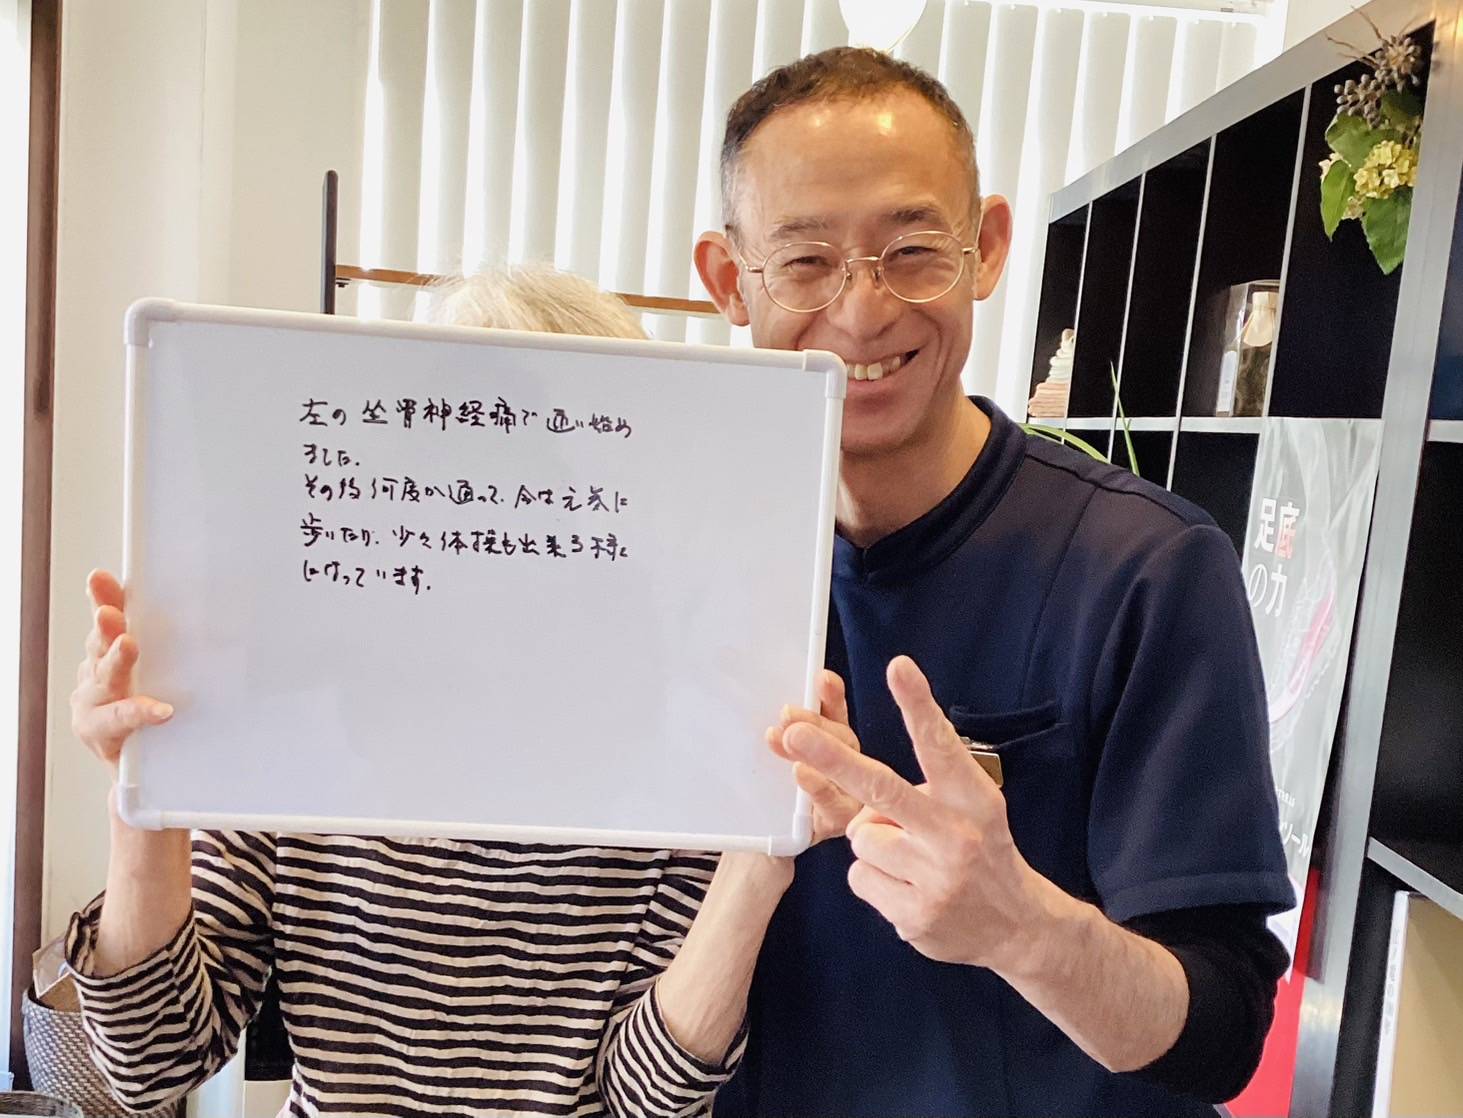 左の坐骨神経痛で通い始め
ました。
その後何度か通って、今は元気に
歩いたり、少々体操も出来る様に
なっています。
足底
の力
ソール